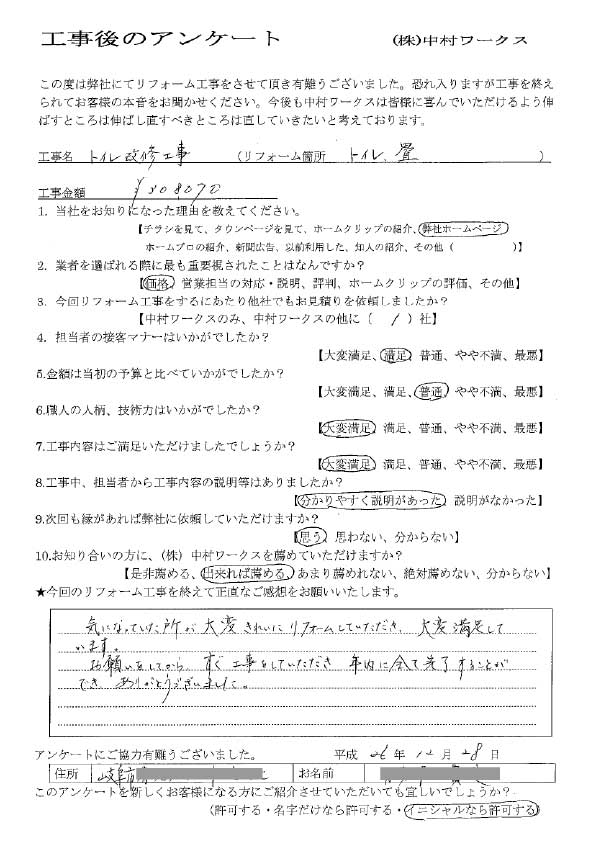 工事後のアンケート (株)中村ワークス
この度は弊社にてリフォーム工事をさせて頂き有難うございました。恐れ入りますが工事を終え
られてお客様の本音をお聞かせください。今後も中村ワークスは皆様に喜んでいただけるよう伸
ばすところは伸ばし直すべきところは直していきたいと考えております。
工事名 トイレ改修工事 (リフォーム箇所 トイレ、畳 )
工事金額 ¥308,070
1. 当社をお知りになった理由を教えてください。
【チラシを見て、タウンページを見て、ホームクリップの紹介、弊社ホームページ
ホームプロの紹介、新聞広告、以前利用した、知人の紹介、その他( )】
2. 業者を選ばれる際に最も重要視されたことはなんですか?
【価格、営業担当の対応・説明、評判、ホームクリップの評価、その他】
3. 今回リフォーム工事をするにあたり他社でもお見積りを依頼しましたか?
【中村ワークスのみ、中村ワークスの他に( / )社】
4. 担当者の接客マナーはいかがでしたか?
【大変満足、満足、普通、やや不満、最悪】
5.金額は当初の予算と比べていかがでしたか?
【大変満足、満足、普通、やや不満、最悪】
6.職人の人柄、技術力はいかがでしたか?
【大変満足、満足、普通、やや不満、最悪】
7.工事内容はご満足いただけましたでしょうか?
【大変満足、満足、普通、やや不満、最悪】
8.工事中、担当者から工事内容の説明等はありましたか?
【分かりやすく説明があった、説明がなかった】
9.次回も縁があれば弊社に依頼していただけますか?
【思う、思わない、分からない】
10.お知り合いの方に、(株)中村ワークスを薦めていただけますか?
【是非薦める、出来れば薦める、あまり薦められない、絶対薦めない、分からない】
★今回のリフォーム工事を終えて正直なご感想をお願いいたします。
気になっていた所が大変きれいにリフォームしていただき、大変満足して
います。
お願いをしてから、すぐ工事をしていただき 年内に全て完了することが
でき ありがとうございました。
アンケートにご協力有難うございました。 平成 26 年 12 月 28 日
住所 岐阜市 お名前
このアンケートを新しくお客様になる方にご紹介させていただいても宜しいでしょうか?
(許可する・名字だけなら許可する・イニシャルなら許可する)